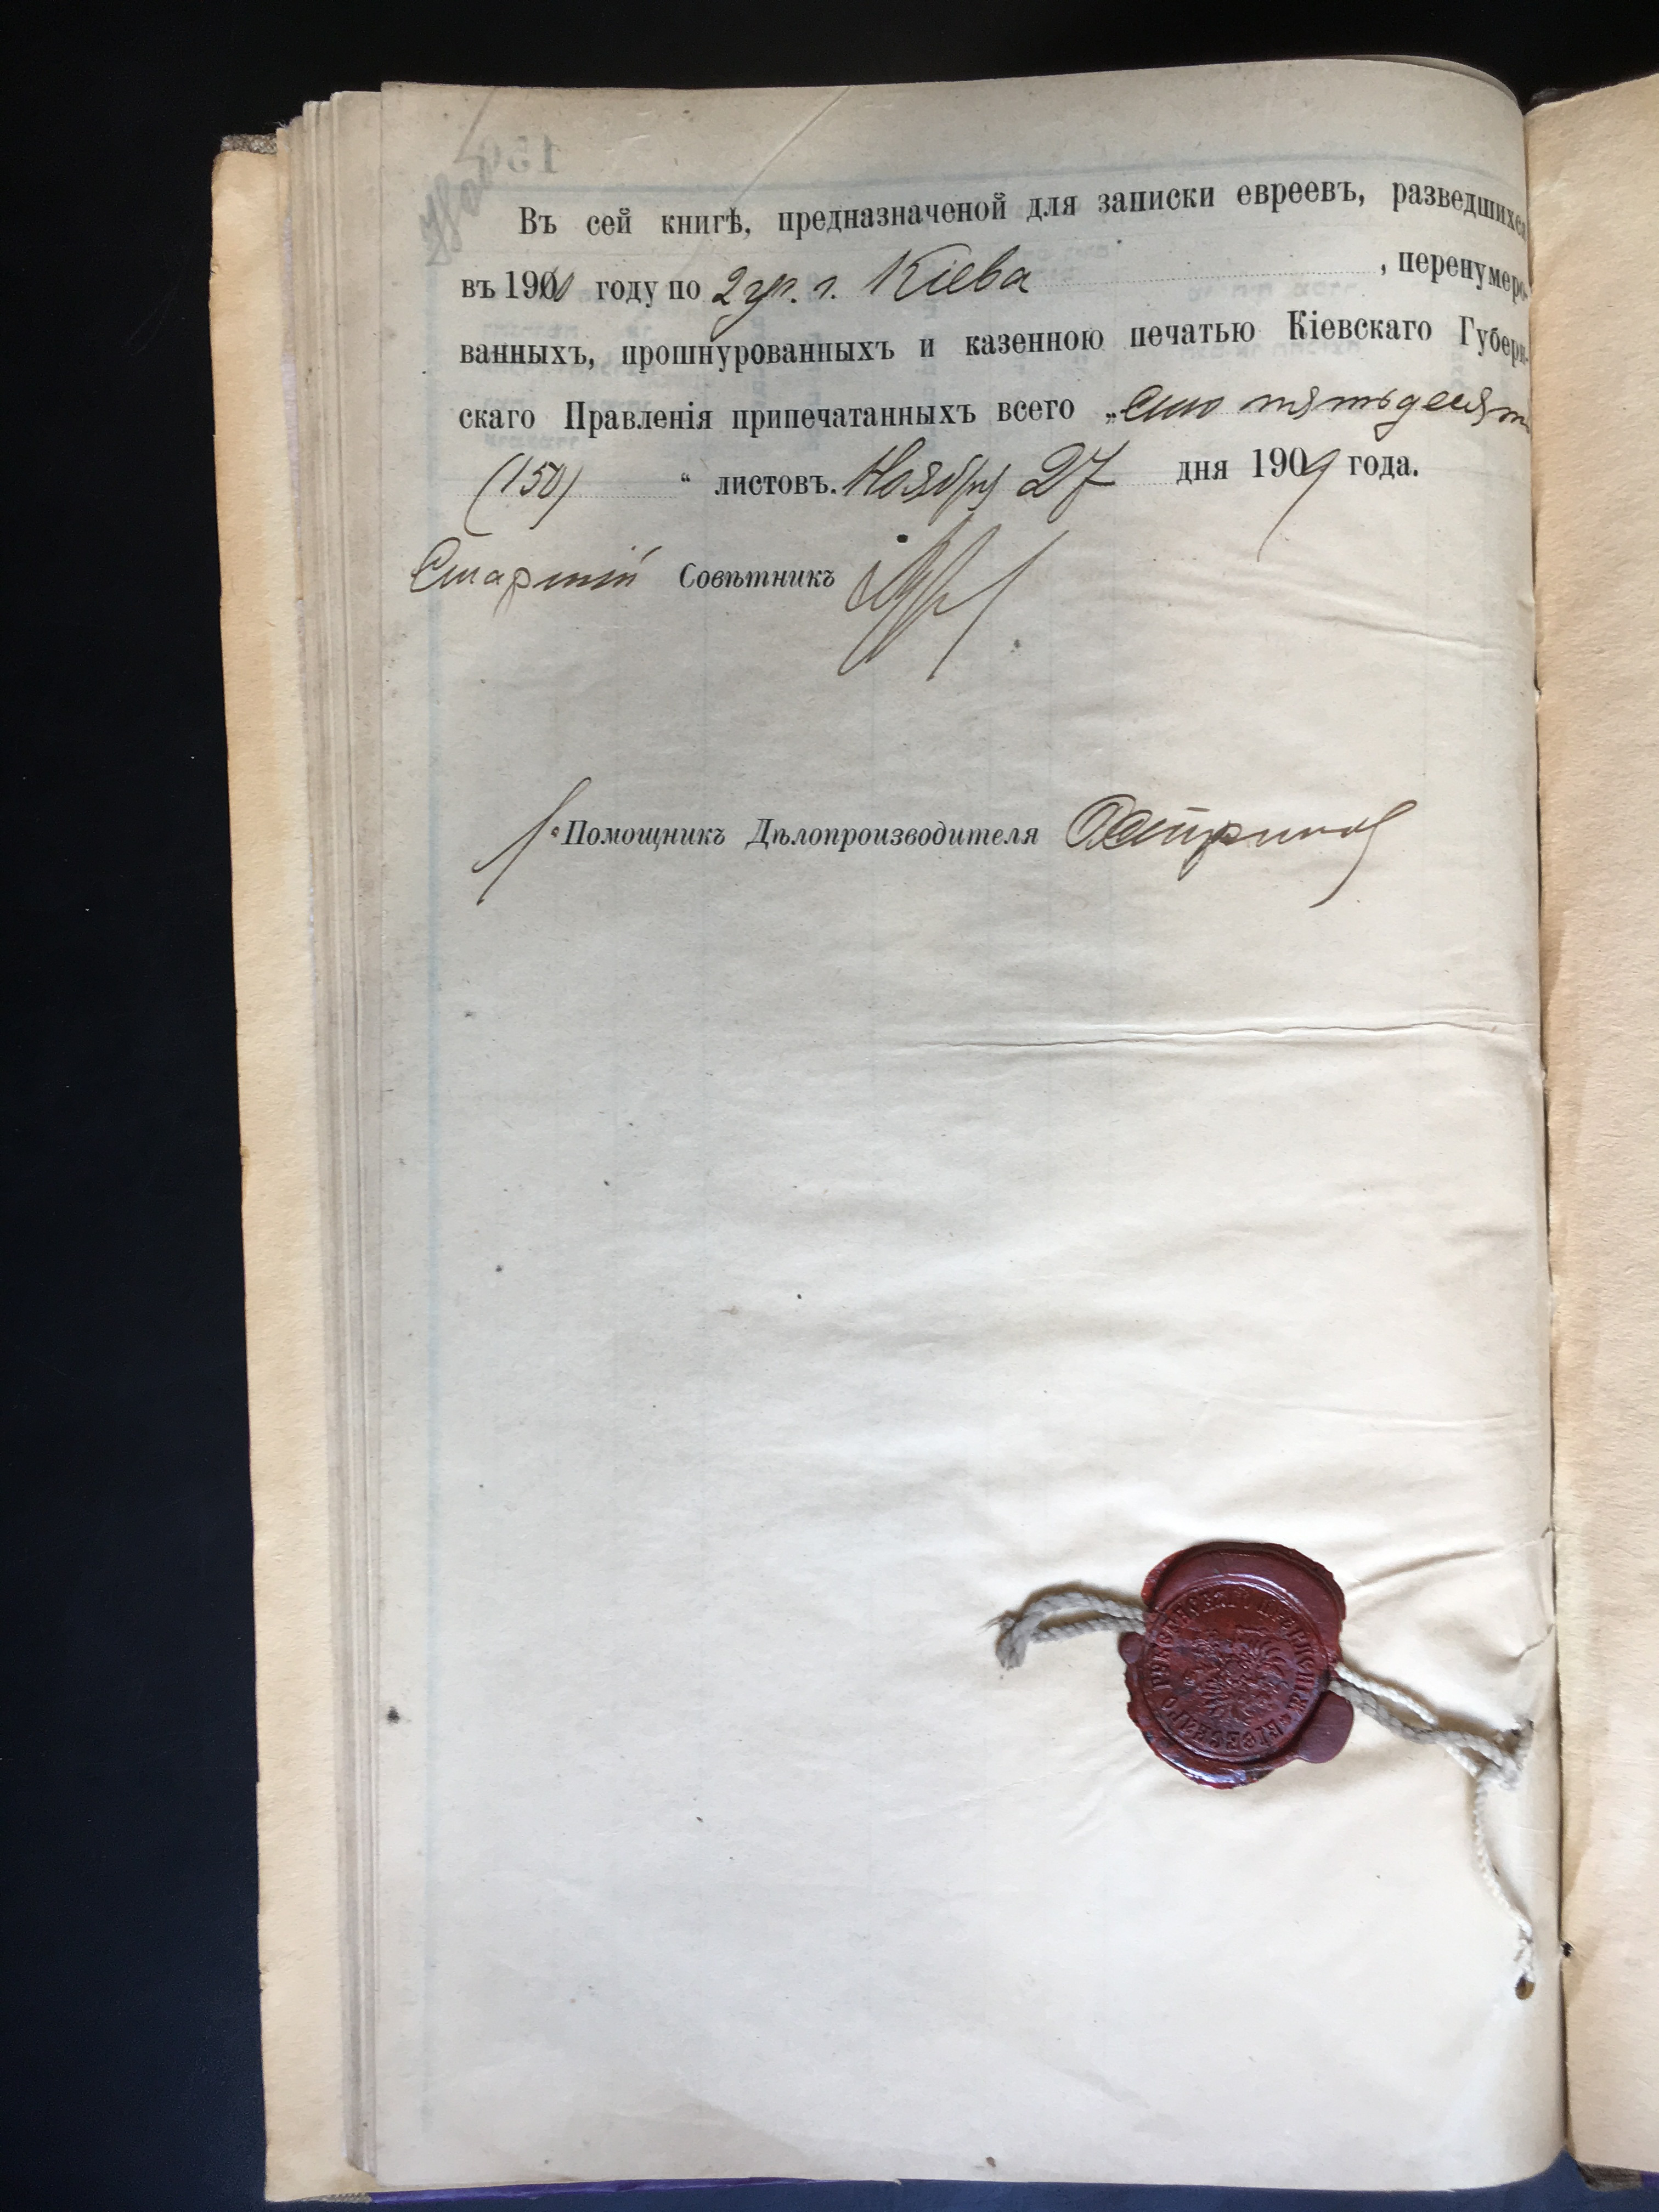 Въ сей книгѣ, предназначеной для записки евреевъ, разведшихся
въ 1910 году по 2 уч. г. Кіева , перенумеро-
ванныхъ, прошнурованныхъ и казенною печатью Кіевскаго Губерн-
скаго Правленія припечатанныхъ всего „сто пятьдесят
(150) “ листовъ. Ноября 27 дня 1909 года.
Старшій Совѣтникъ
Помощникъ Дѣлопроизводителя
150
КІЕВСКАГО ГУБЕРНСКАГО ПРАВЛЕНІЯ